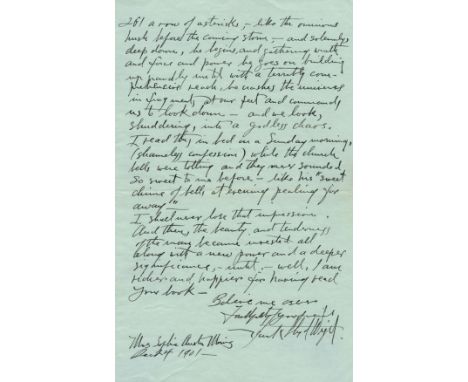 261 a row of asterisks, - like the ominous
hush before the coming storm - and solemnly,
deep down, he begins, and gathering wrath
and fire and power he goes on building
up grandly until with a terribly com-
prehensive reach, he crashes the universe
in fragments at our feet and commands
us to look down - and we look,
shuddering, into a godless chaos.
I read this in bed on a Sunday morning,
(shameless confession) while the church
bells were tolling and they never sounded
so sweet to me before - like his "sweet
chime of bells at evening pealing far
away -"
I shall never lose that impression.
And then, the beauty and tenderness
of the man became invested all
along with a new power and a deeper
significance, - until - well, I am
richer and happier for having read
your book -
Believe me ever
Faithfully
Mrs
1901 -